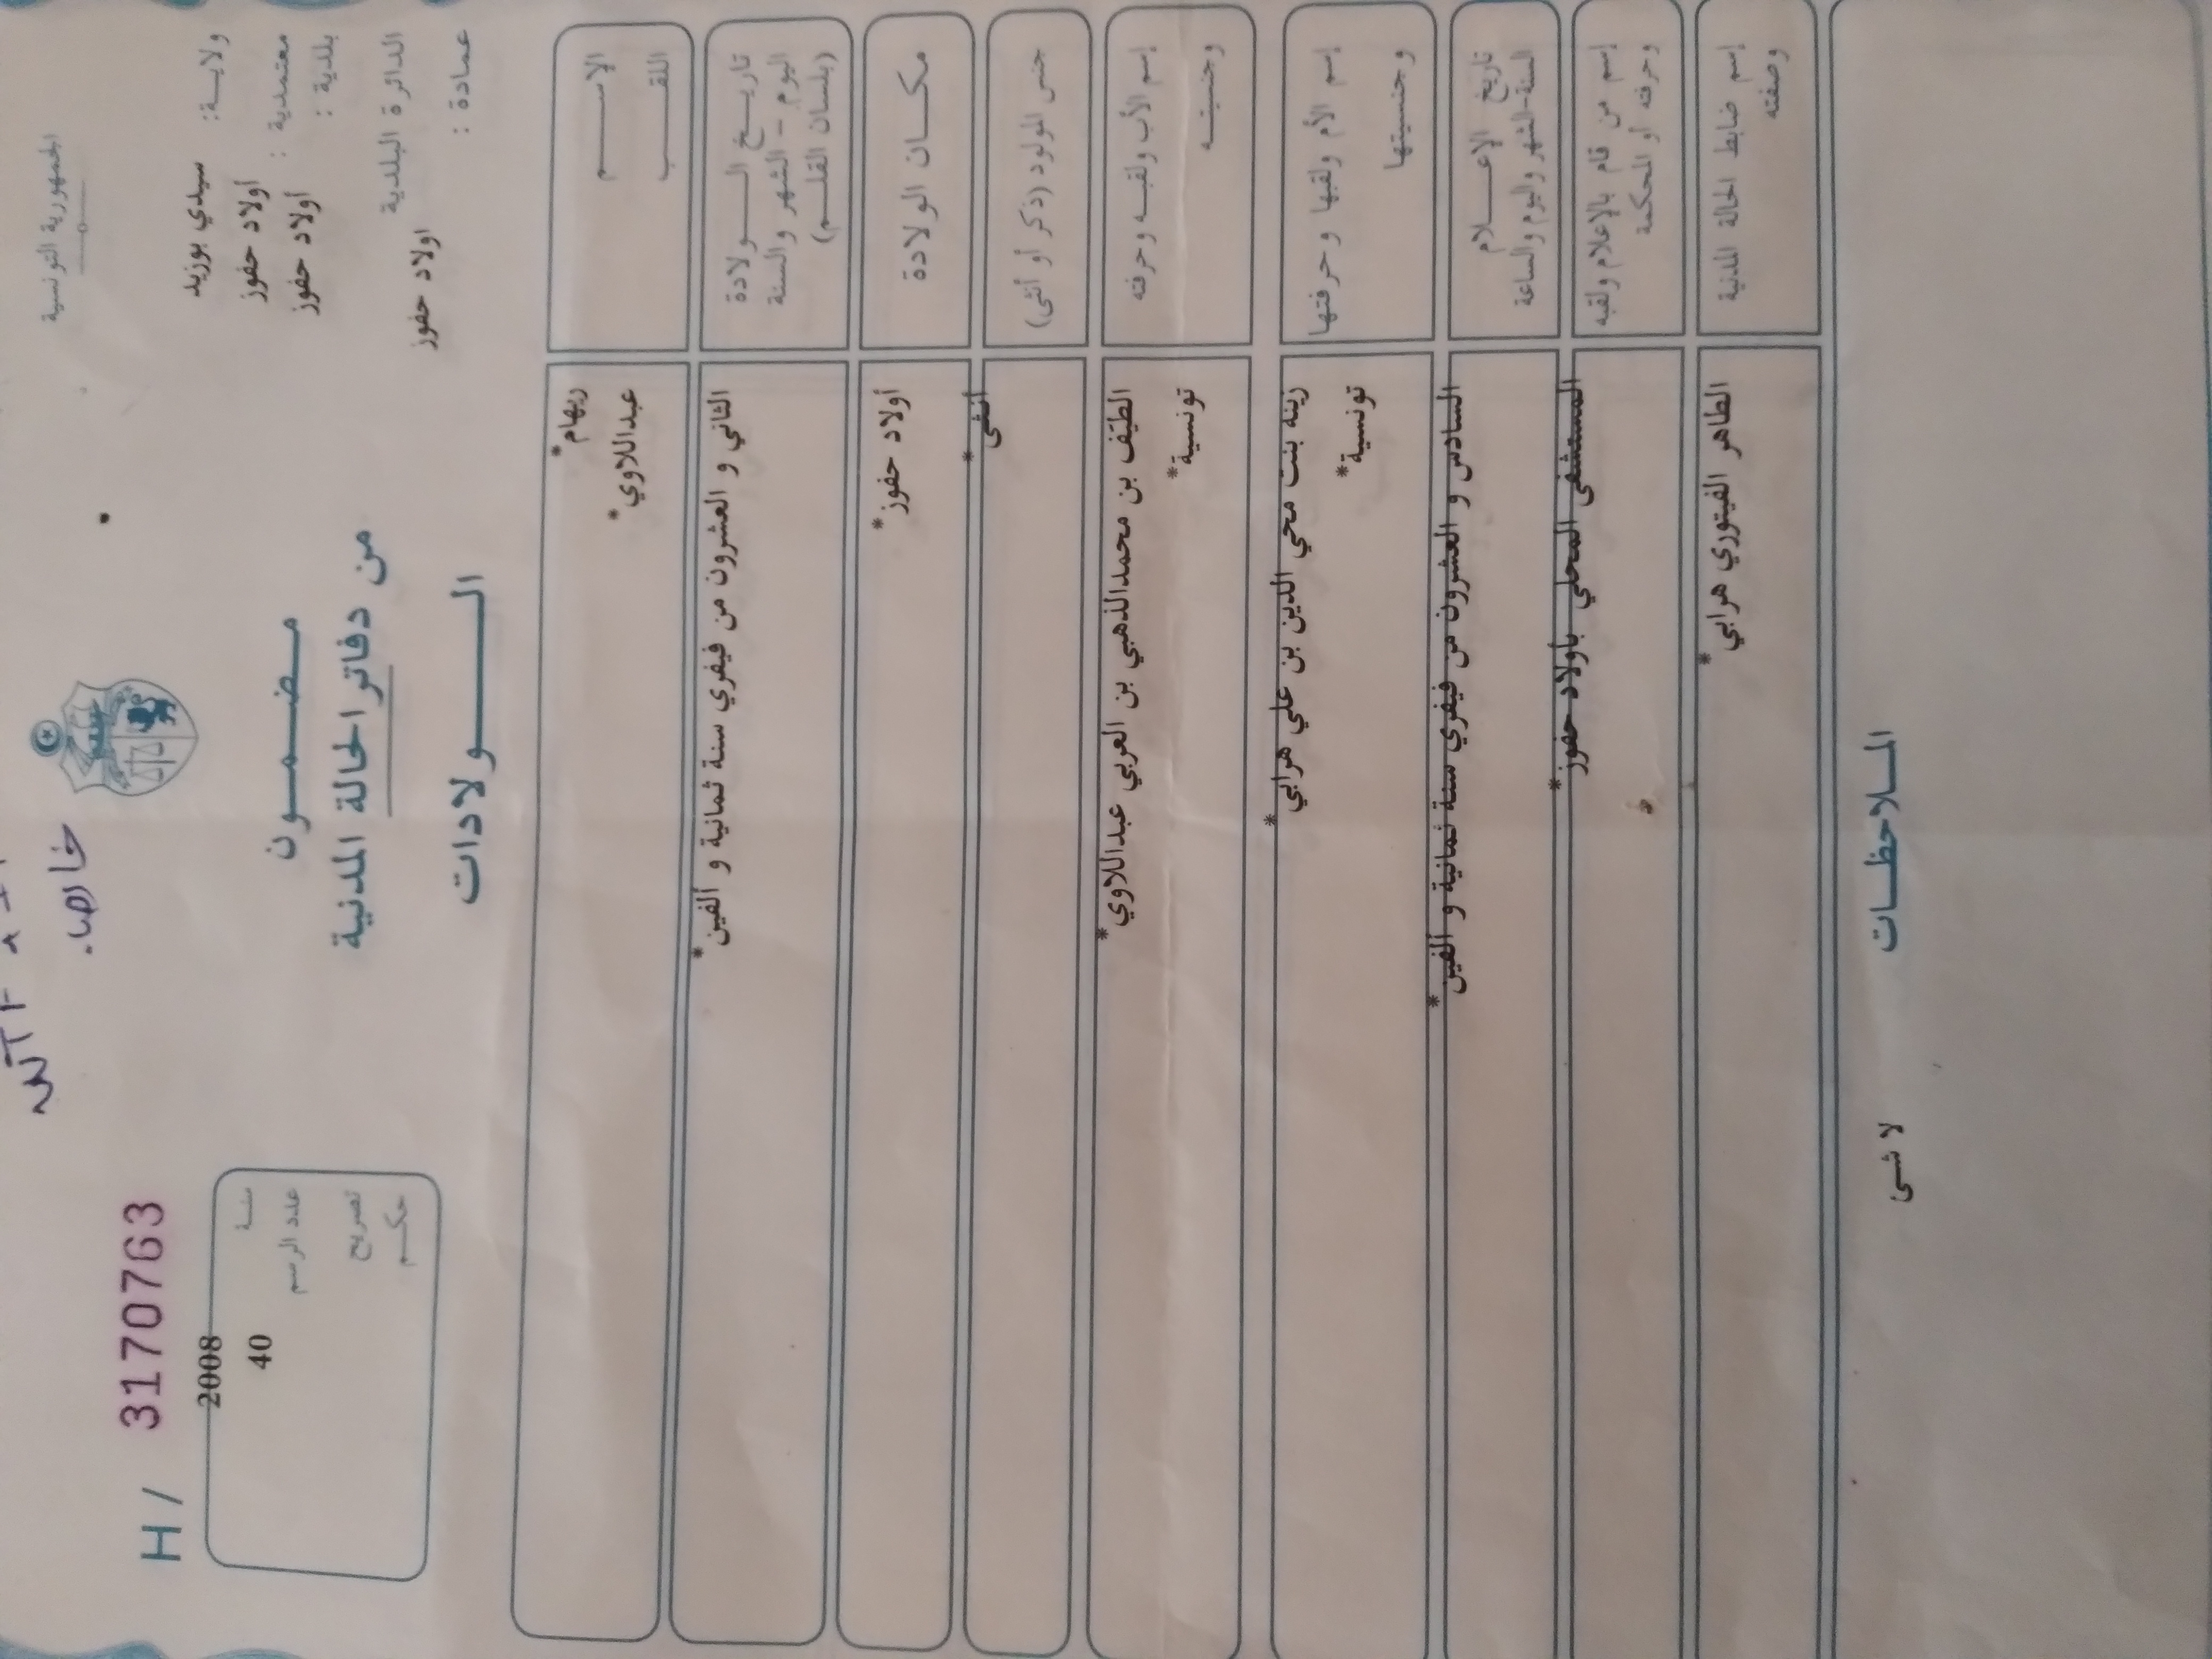 الجمهورية التونسية
ولاية: سيدي بوزيد
معتمدية: أولاد حفوز
بلدية: أولاد حفوز
الدائرة البلدية
اولاد حفوز
عمادة:
خاصا.
مضمون
من دفاتر الحالة المدنية
الولادات
H/ 3170763
سنة 2008
عدد الرسم 40
تصريح
حكم
الاسم ريهام*
اللقب عبداللاوي*
تاريخ الولادة
اليوم - الشهر والسنة
(بلسان القلم)
الثاني و العشرون من فيفري سنة ثمانية و ألفين*
مكان الولادة
أولاد حفوز*
جنس المولود (ذكر أو أنثى)
أنثى*
إسم الأب ولقبه وحرفته
الطيف بن محمدالذهبي بن العربي عبداللاوي*
وجنسيته
تونسية*
إسم الأم ولقبها وحرفتها
زينه بنت محي الدين بن علي هرابي*
وجنسيتها
تونسية*
تاريخ الإعلام
السنة-الشهر واليوم والساعة
السادس و العشرون من فيفري سنة ثمانية و ألفين*
إسم من قام بالإعلام ولقبه
وحرفته أو المحكمة
المستشفى المحلي بأولاد حفوز*
إسم ضابط الحالة المدنية
وصفته
الطاهر الفيتوري هرابي*
الملاحظات
لا شى